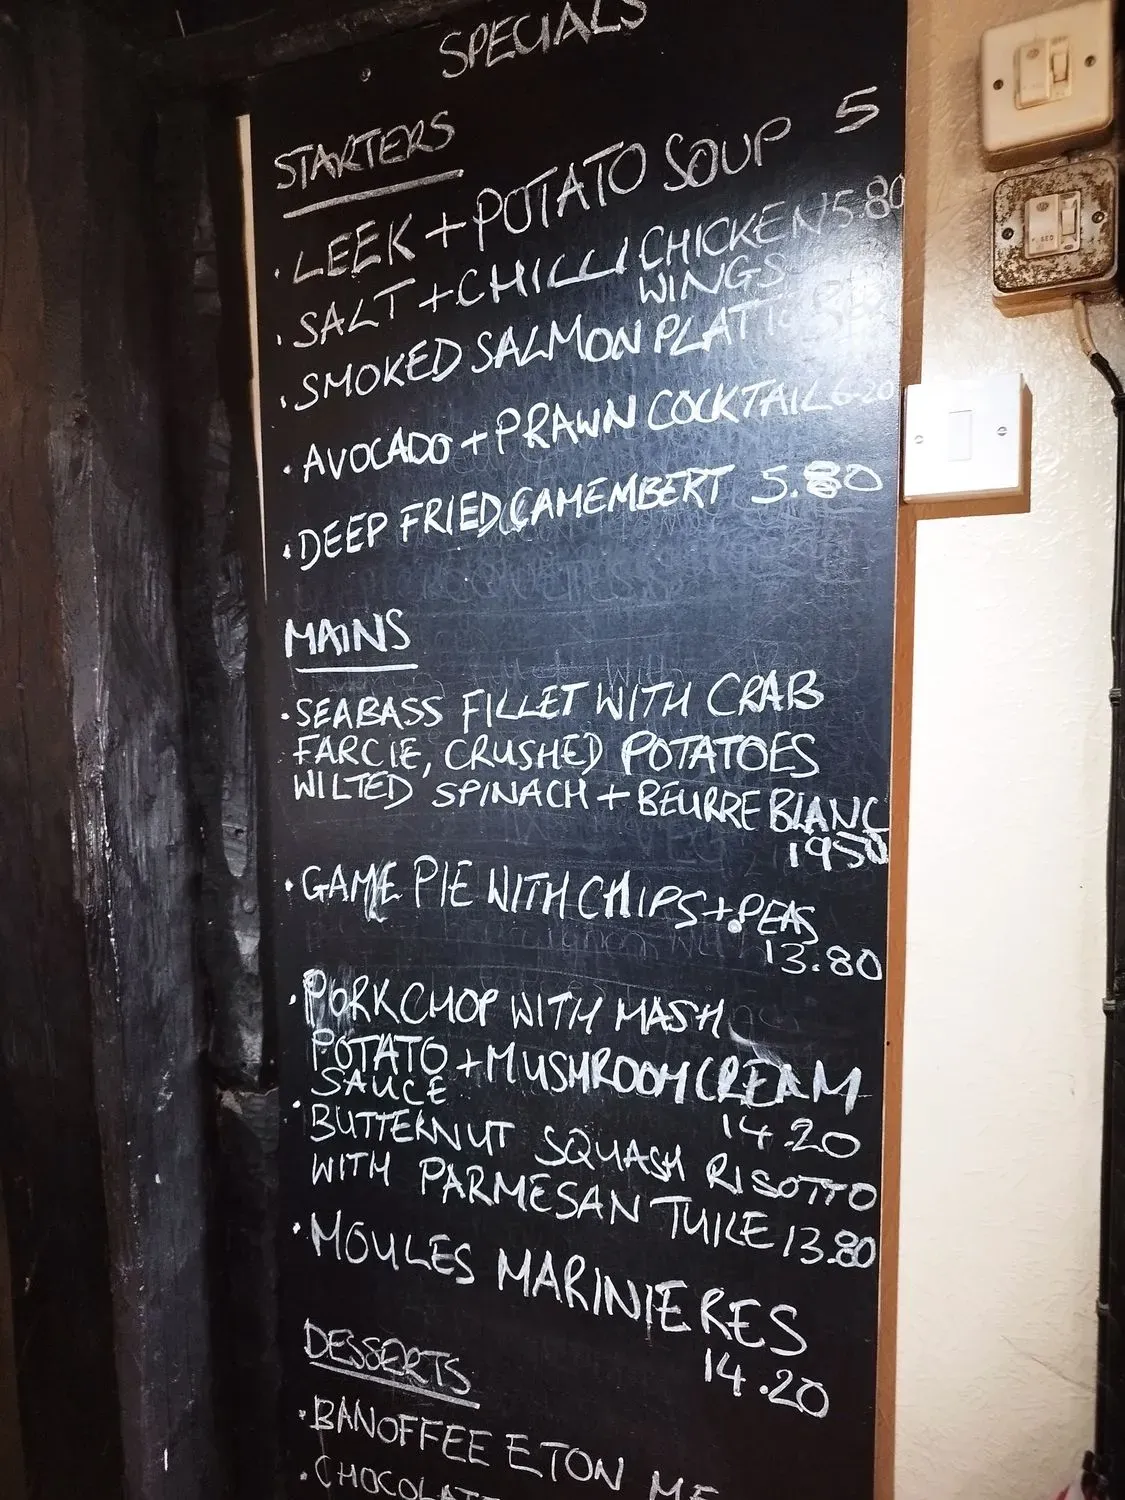 SPECIALS
STARTERS
· LEEK + POTATO SOUP 5
· SALT + CHILLI CHICKEN 5.80
WINGS
· SMOKED SALMON
· AVOCADO + PRAWN COCKTAIL 6.20
· DEEP FRIED CAMEMBERT 5.80
MAINS
· SEABASS FILLET WITH CRAB
FARCIE, CRUSHED POTATOES
WILTED SPINACH + BEURRE BLANC
1950
· GAME PIE WITH CHIPS + PEAS
13.80
· PORK CHOP WITH MASH
POTATO + MUSHROOM CREAM
SAUCE 14.20
· BUTTERNUT SQUASH RISOTTO
WITH PARMESAN TUILE 13.80
· MOULES MARINIERES
14.20
DESSERTS
· BANOFFEE ETON ME
· CHOCOLAT